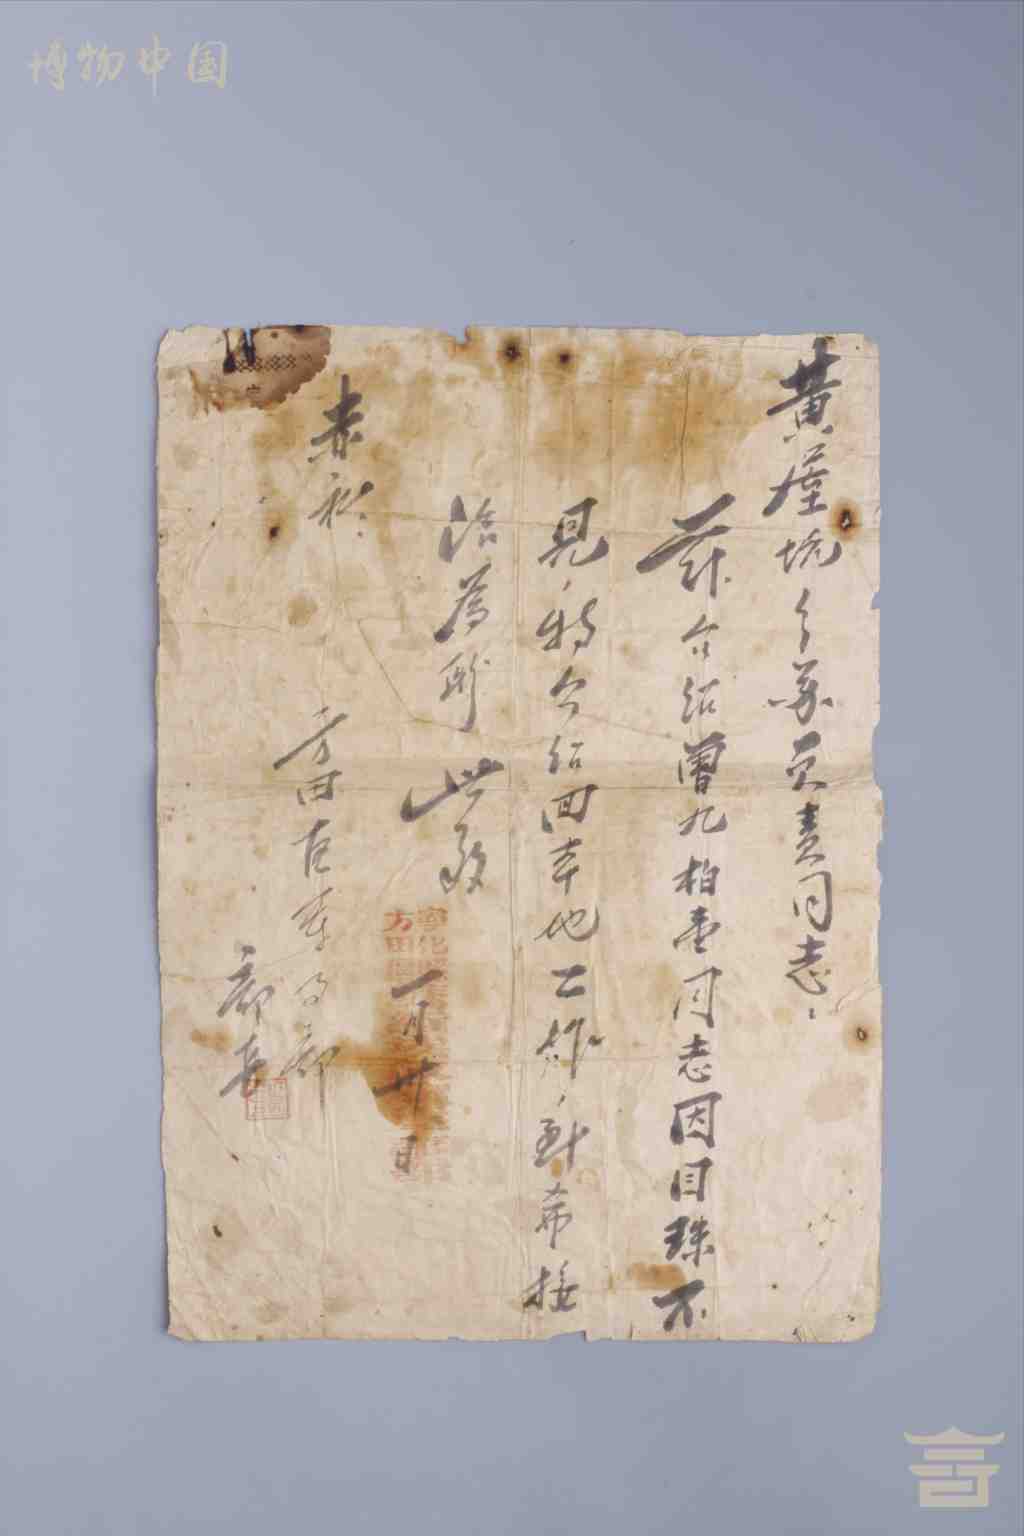 博物中国
黄 坑乡苏负责同志:
兹介绍曾九柏 同志因目珠不
见,特介绍回本地工作,到希接
洽为盼 此致
赤礼:
方田区 部
部长
一月廿 日
寧化
方田區